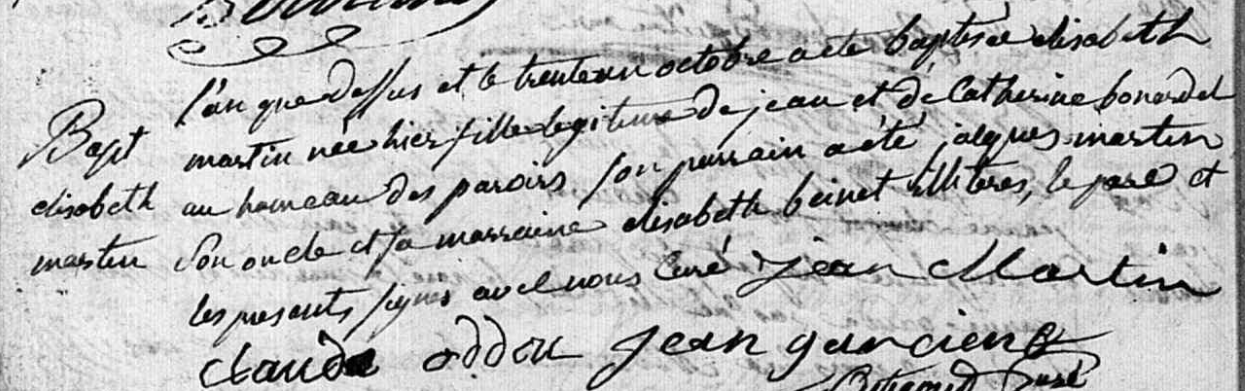 l'an que dessus et le trente un octobre a été baptisée elisabeth
Bapt
martin née hier fille legitime de jean et de Catherine bonardel
elisabeth
au hameau des paroirs son parrain a été jacques martin
martin
son oncle et sa marraine elisabeth beinet illiteres, le pere et
les presents signés avec nous Curé jean Martin
claude oddou jean garcien
Curé